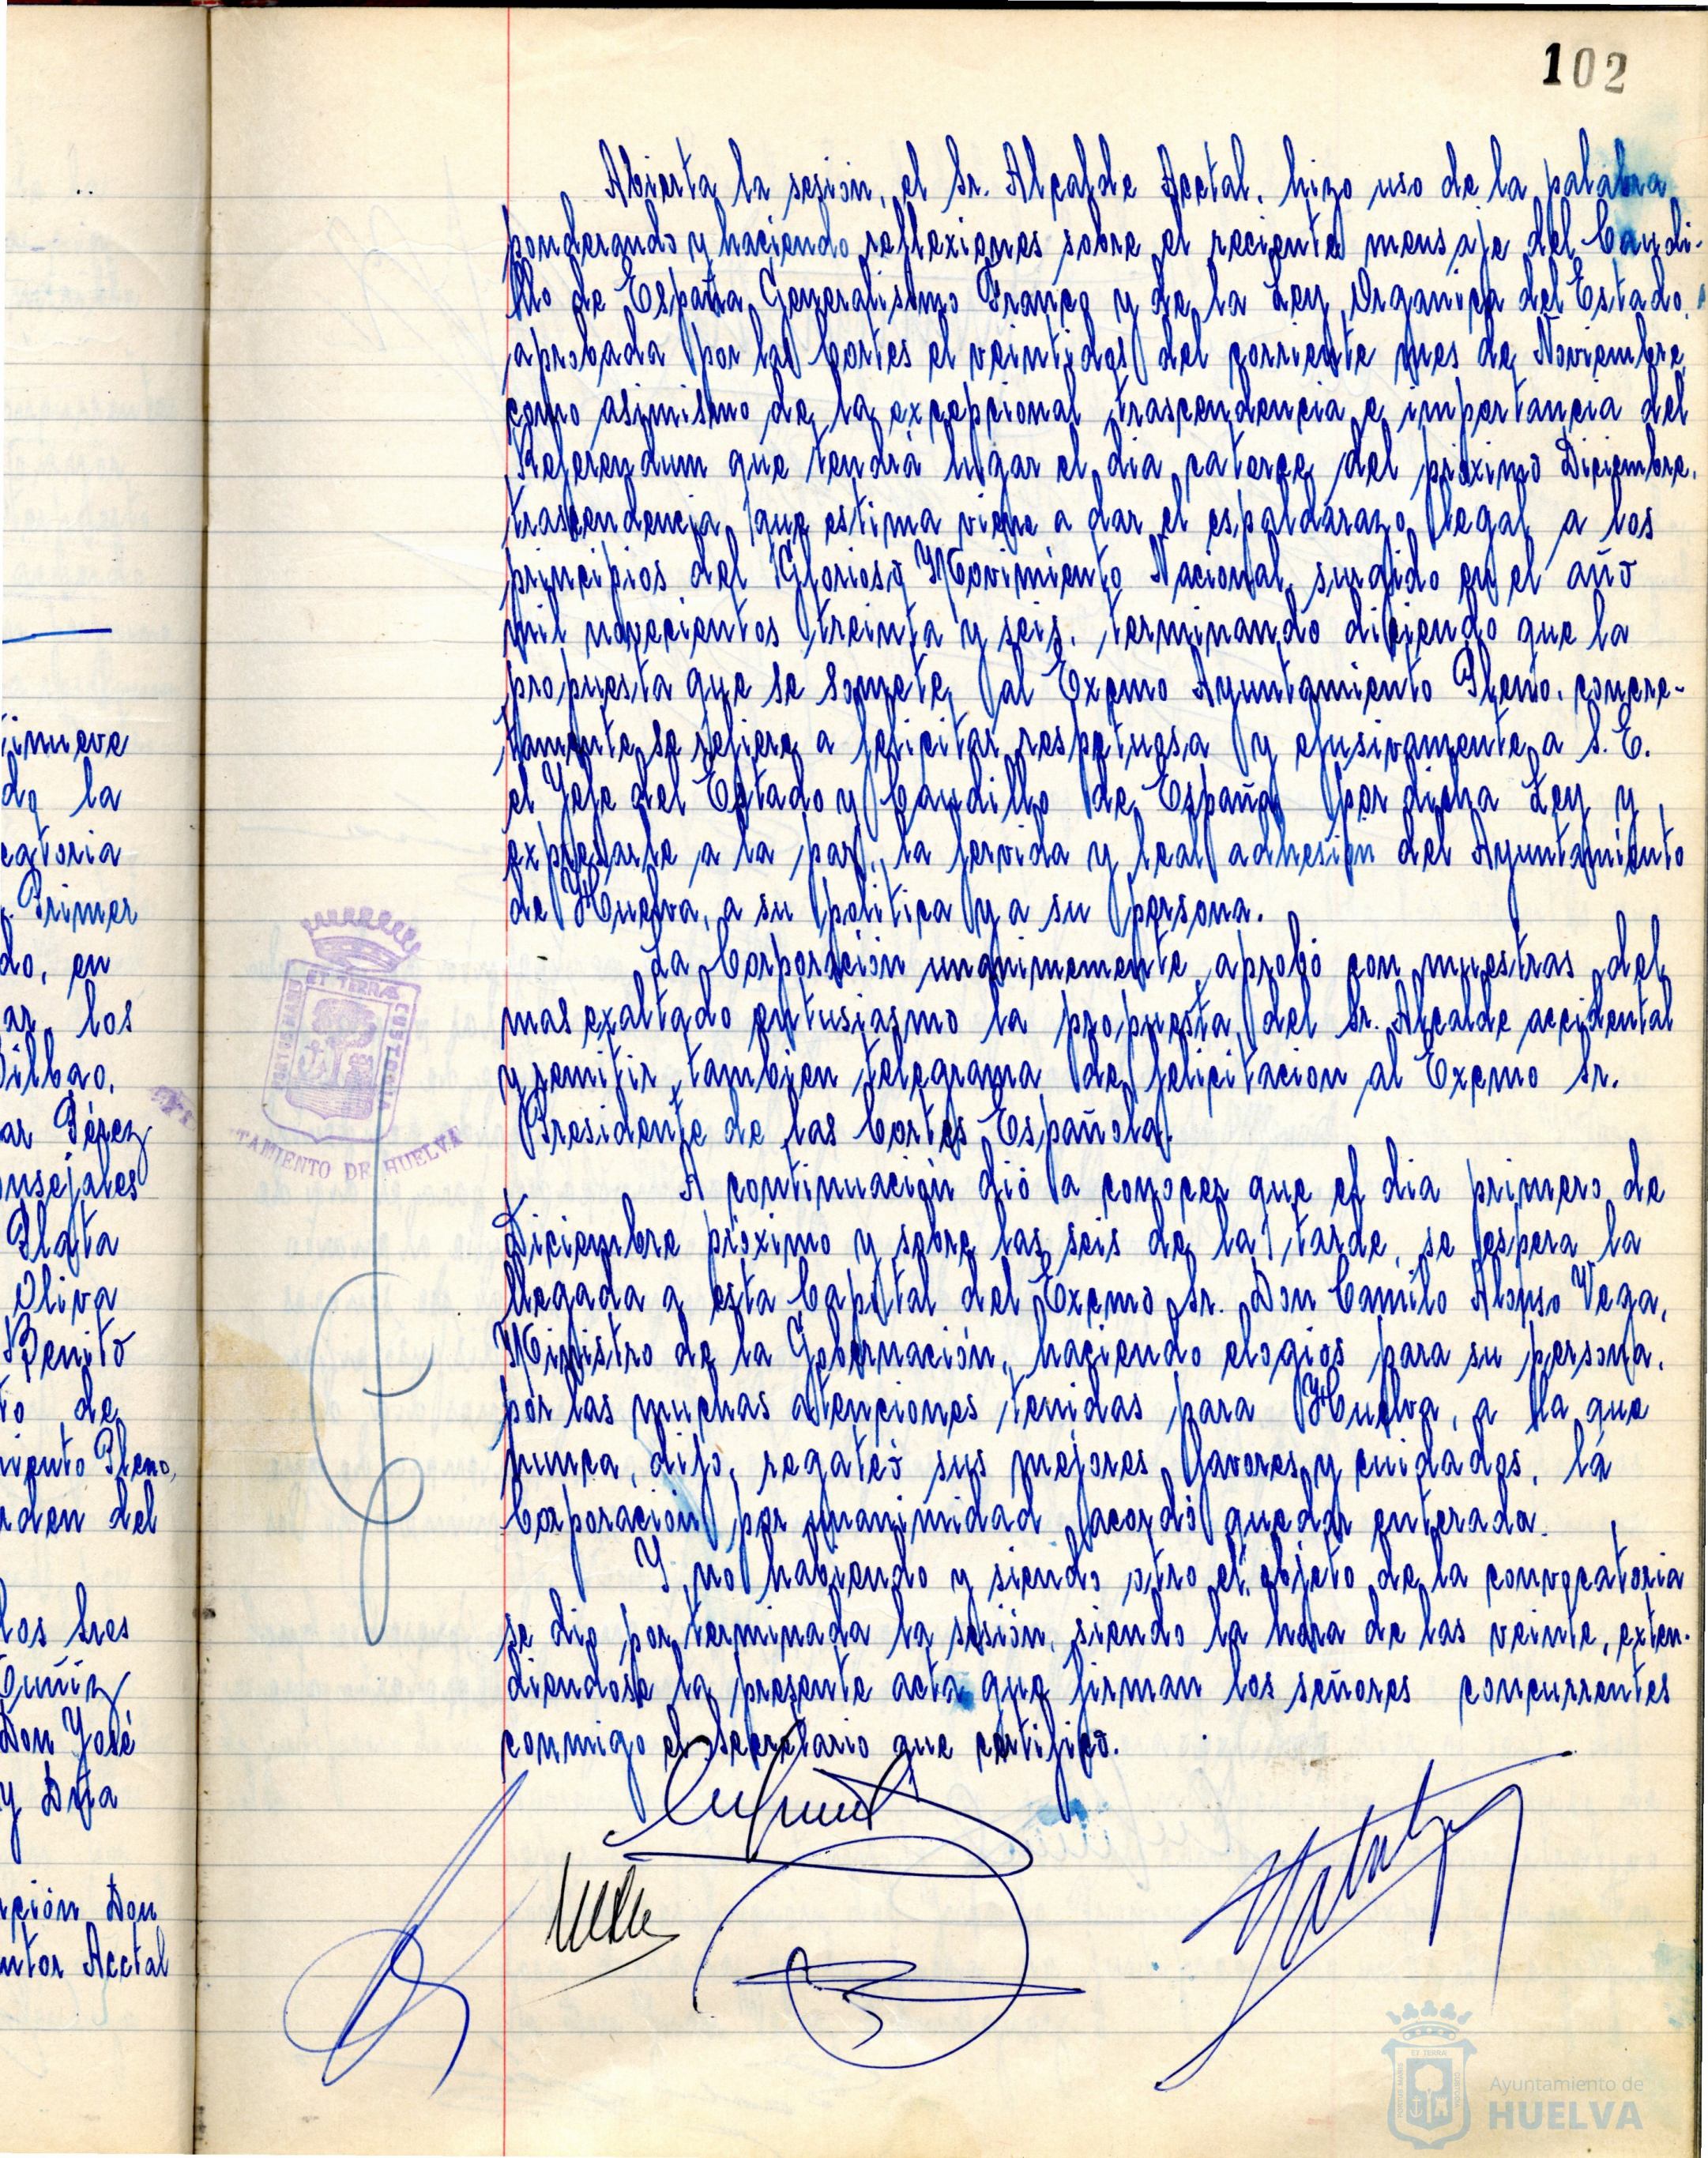 102
Abierta la sesión, el Sr. Alcalde Acctal. hizo uso de la palabra
ponderando y haciendo reflexiones sobre el reciente mensaje del Caudi-
llo de España Generalisimo Franco y de la Ley Organica del Estado,
aprobada por las Cortes el veintidos del corriente mes de Noviembre,
como asimismo de la excepcional trascendencia e importancia del
Referendum que tendrá lugar el dia catorce del próximo Diciembre,
trascendencia que estima viene a dar el espaldarazo legal a los
principios del Glorioso Movimiento Nacional surgido en el año
mil novecientos treinta y seis, terminando diciendo que la
propuesta que se somete al Excmo Ayuntamiento Pleno, concre-
tamente se refiere a felicitar respetuosa y efusivamente a S. E.
el Jefe del Estado y Caudillo de España por dicha Ley y
expresarle a la par, la fervida y leal adhesión del Ayuntamiento
de Huelva, a su politica y a su persona.
La Corporación unanimemente aprobó con muestras del
mas exaltado entusiasmo la propuesta del Sr. Alcalde accidental
y remitir tambien telegrama de felicitacion al Excmo Sr.
Presidente de las Cortes Española.
A continuación dió a conocer que el dia primero de
Diciembre próximo y sobre las seis de la tarde, se espera la
llegada a esta Capital del Excmo Sr. Don Camilo Alonso Vega,
Ministro de la Gobernación, haciendo elogios para su persona,
por las muchas atenciones tenidas para Huelva, a la que
nunca, dijo, regateó sus mejores favores y cuidados, la
Corporación por unanimidad acordó quedar enterada.
Y no habiendo y siendo otro el objeto de la convocatoria
se dio por terminada la sesión, siendo la hora de las veinte, exten-
diendose la presente acta que firman los señores concurrentes
conmigo el Secretario que certifico.
inueve
do la
catoria
Primer
do, en
ar los
Bilbao,
ar Pérez
onsejales
Plata
Oliva
Benito
to de
miento Pleno,
rden del
los Sres
Don José
y Dña
pción Don
ntor Acctal
ET TERRÆ CUSTODIA
PORTUS MARIS
TAMIENTO DE HUELVA
Ayuntamiento de
HUELVA